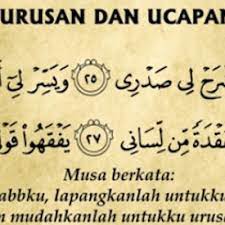 URUSAN DAN UCAPAN
رَحْ لِي صَدْرِي ٢٥ وَيَسِّرْ لِيٓ أَ
عُقْدَةً مِّن لِّسَانِي ٢٧ يَفْقَهُوا۟ قَوْ
Musa berkata:
abbku, lapangkanlah untukku
n mudahkanlah untukku urus